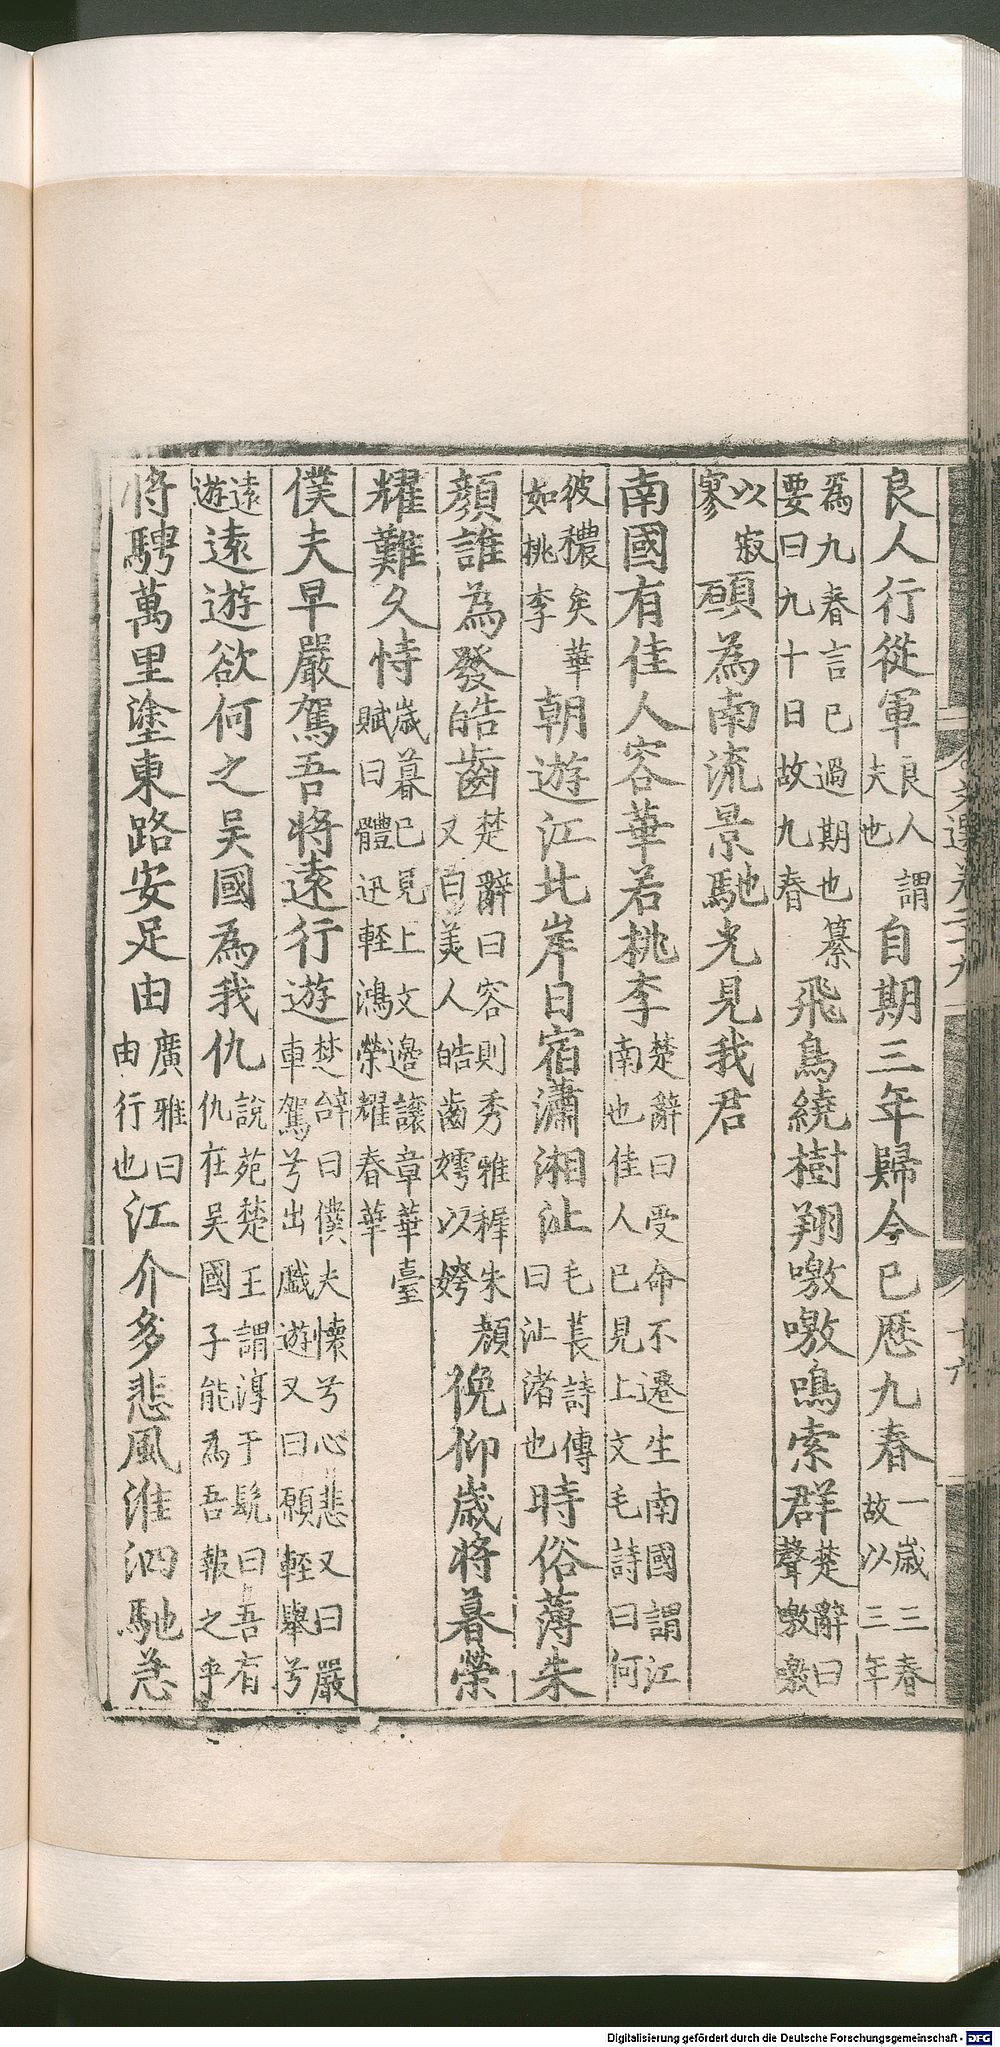 文選卷二十九 十六
良人行從軍良人謂夫也自期三年歸今已歷九春一歲三春故以三年
爲九春言已過期也纂要曰九十日故九春飛鳥繞樹翔噭噭鳴索群楚辭曰聲噭噭
以寂寥願為南流景馳光見我君
南國有佳人容華若桃李楚辭曰受命不遷生南國謂江南也佳人已見上文毛詩曰何
彼穠矣華如桃李朝遊江北岸日宿瀟湘沚毛萇詩傳曰沚渚也時俗薄朱
顏誰為發皓齒楚辭曰容則秀雅稺朱顏又曰美人皓齒嫮以姱俛仰歲將暮榮
耀難久恃歲暮已見上文邊讓章華臺賦曰體迅輕鴻榮耀春華
僕夫早嚴駕吾將遠行遊楚辭曰僕夫懷兮心悲又曰嚴車駕兮出戲遊又曰願輕舉兮
遠遊遠遊欲何之吳國為我仇說苑楚王謂淳于髡曰吾有仇在吳國子能為吾報之乎
將騁萬里塗東路安足由廣雅曰由行也江介多悲風淮泗馳急
Digitalisierung gefördert durch die Deutsche Forschungsgemeinschaft - DFG